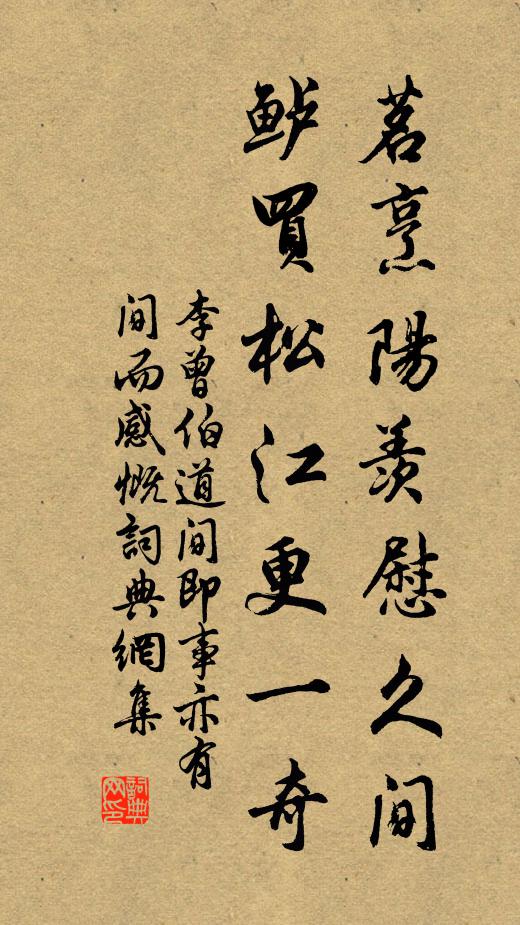 茗烹陽羨慰久间
鲈買松江更一奇
李曾伯道间即事亦有
间而感慨詞典網集
詞典网印